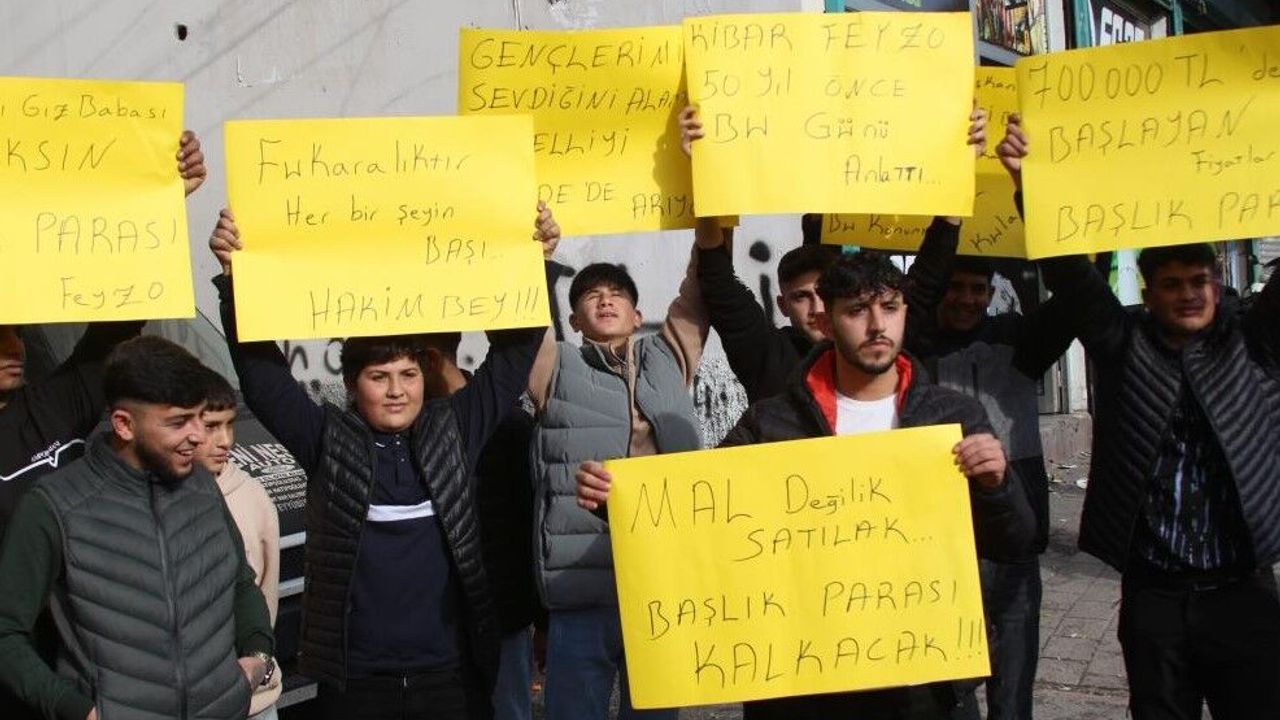 Gız Babası
PARASI
Feyzo
Fukaralıktır
Her bir şeyin
BAŞI..
HAKİM BEY!!!
GENÇLERİMİ
SEVDİĞİNİ ALAM
ELLİYİ
DE'DE ARIY
KİBAR FEYZO
50 Yıl ÖNCE
BU GÜNÜ
Anlattı...
Bu Konunu
700000 TL'de
BAŞLAYAN
Fiyatlar
BAŞLIK PAR
MAL Değilik
SATILAK...
BAŞLIK PARASI
KALKACAK!!!